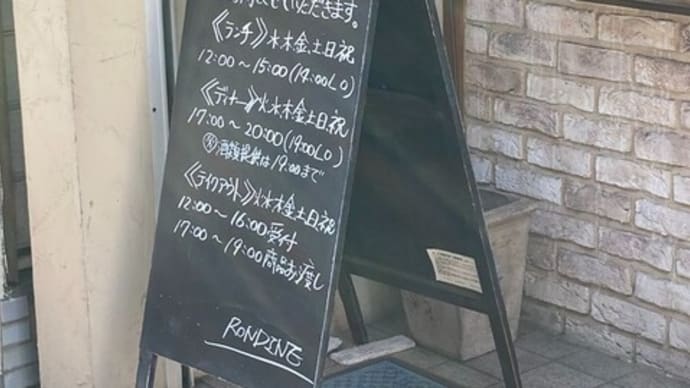 せていただきます。
《ランチ》水木金土日祝
12:00〜15:00(14:00LO)
《ディナー》火水木金土日祝
17:00〜20:00(19:00LO)
酒類提供は19:00まで
《テイクアウト》火水木金土日祝
12:00〜16:00受付
17:00〜19:00商品お渡し
RONDINE